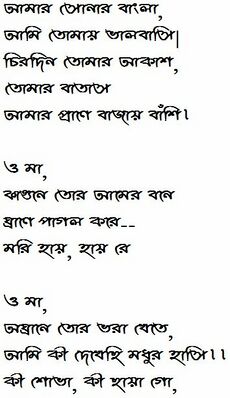 আমার সোনার বাংলা,
আমি তোমায় ভালবাসি।
চিরদিন তোমার আকাশ,
তোমার বাতাস
আমার প্রাণে বাজায় বাঁশি।
ও মা,
ফাগুনে তোর আমের বনে
ঘ্রাণে পাগল করে--
মরি হায়, হায় রে
ও মা,
অঘ্রানে তোর ভরা খেতে,
আমি কী দেখেছি মধুর হাসি।।
কী শোভা, কী ছায়া গো,